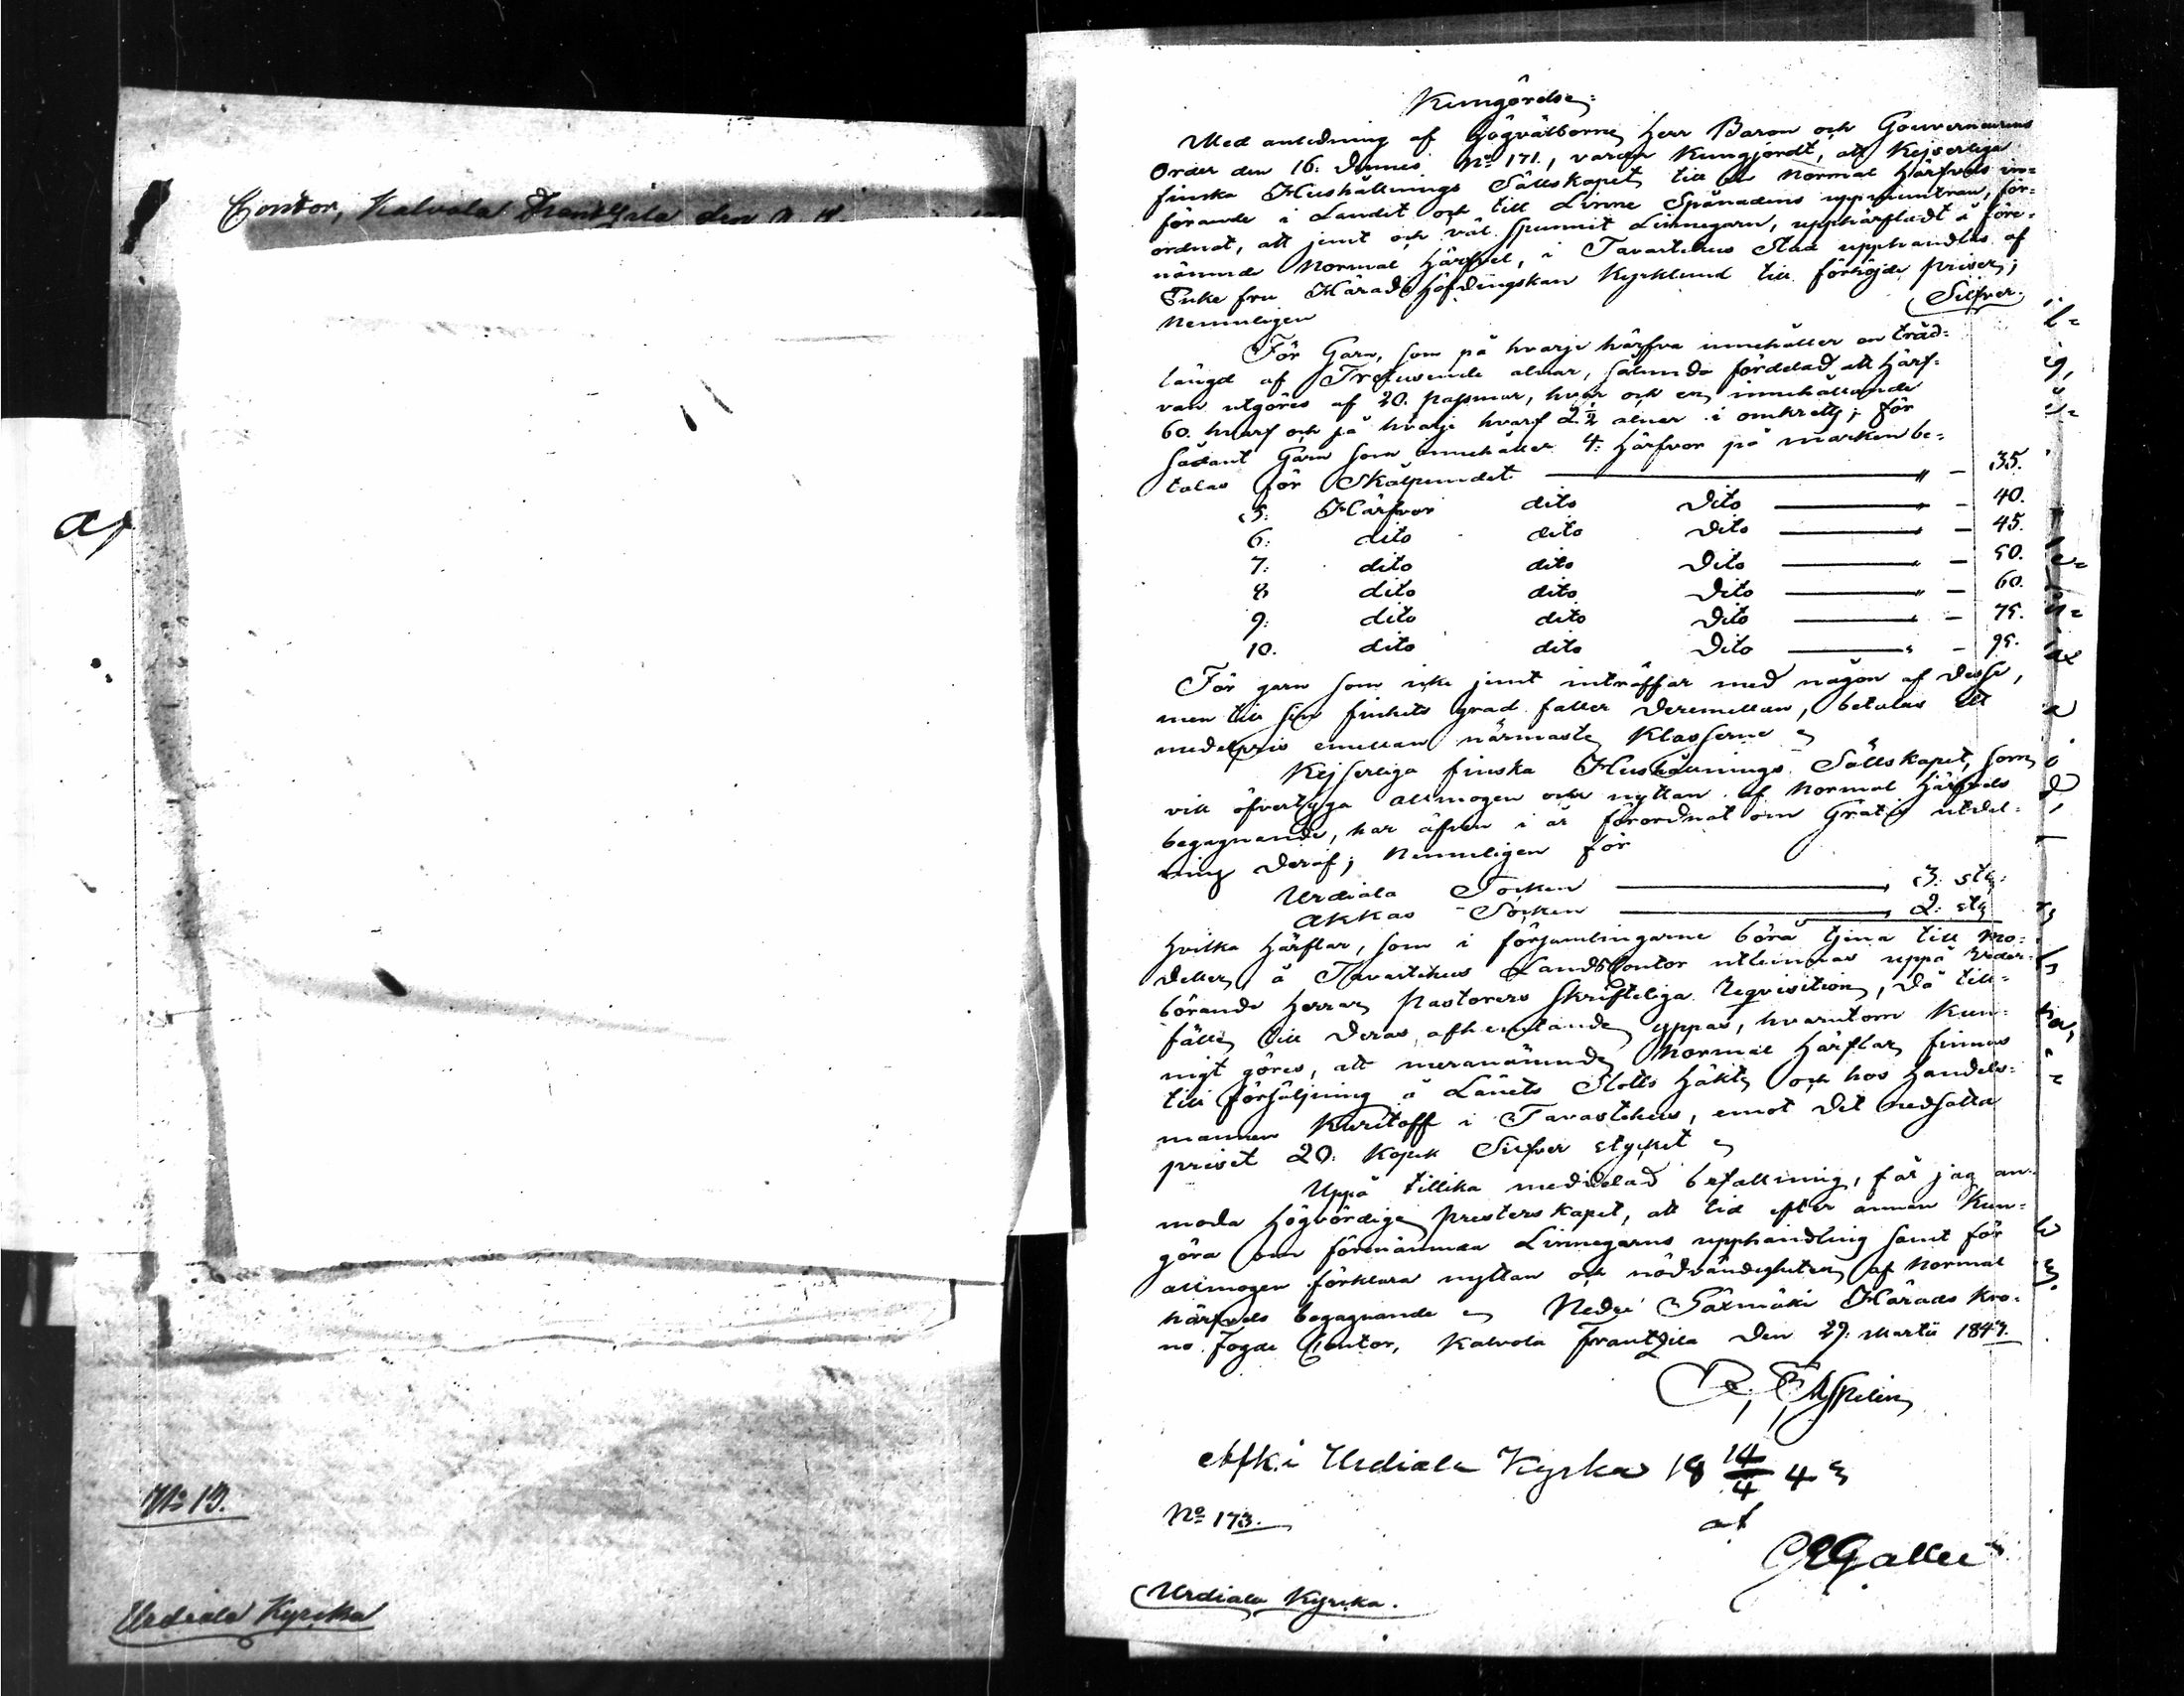 Contor, Kalvola Frantzila den
af
No 13.
Urdiala Kyrka
Kungörelse,
Med anledning af Högvälborne Herr Baron och Gouverneurens
Order den 16: dennes No 171, varder kungjordt, att Kejserliga
finska Hushållnings Sällskapet till en Normal Härfvels in=
förande i Landet och till Linne Spånadens uppmuntran, för=
ordnat, att jemt och väl spunnit Linnegarn, upphärfladt å före=
nämnde Normal Härfvel, i Tavastehus Stad upphandlas af
Enke fru Häradshöfdingskan Kyrklund till förhöjde priser;
Nemnligen
Silfver.
För Garn, som på hvarje härfva innehåller en tråd=
längd af Tretusende alnar, sålunda fördelad att Härf=
van utgöres af 20. pasmar, hvar och en innehållande
60. hvarf och på hvarje hvarf 2 1/2 alnar i omkrets; för
sådant Garn som innehåller 4: härfvor på marken be=
talas för Skålpundet " — 35.
5: Härfvor dito dito " — 40.
6: dito dito dito " — 45.
7: dito dito dito " — 50.
8 dito dito dito " — 60.
9: dito dito dito " — 75.
10. dito dito dito " — 95.
För garn som icke jemt inträffar med någon af desse,
men till sin finhets grad faller deremellan, betalas ett
medelpris emellan närmaste Klasserne
Kejserliga finska Hushållnings Sällskapet, som
vill öfvertyga allmogen om nyttan af Normal Härfvels
begagnande, har äfven i år förordnat om Gratis utdel=
ning deraf; Nemnligen för
Urdiala Socken 3: st:
Akkas Socken 2: st
hvilka härflar, som i församlingarne böra tjena till mo=
deller, å Tavastehus Landskontor utlemnas uppå Veder=
börande Herrar Pastorers skrifteliga Reqvisition, då till=
fälle till deras afhemtande yppas, hvarutom kun=
nigt göres, att meranämnde Normal Härflar finnas
till försäljning å Länets Slotts häkte och hos Handels=
mannen Kuritoff i Tavastehus, emot det nedsatta
priset 20: Kopek Silfver stycket
Uppå tillika meddelad befallning, får jag an=
moda Högvördige Presterskapet, att tid efter annan kun=
göra om förenämnda Linnegarns upphandling samt för
allmogen förklara nyttan och nödvändigheten af Normal
härfvels begagnande Nedre Säxmäki Härads Kro=
no Fogde Contor, Kalvola Frantzila den 29: Martii 1843.
Aspelin
Afk. i Urdiala Kyrka 18 14/4 43
af
No 173.
Urdiala Kyrka.